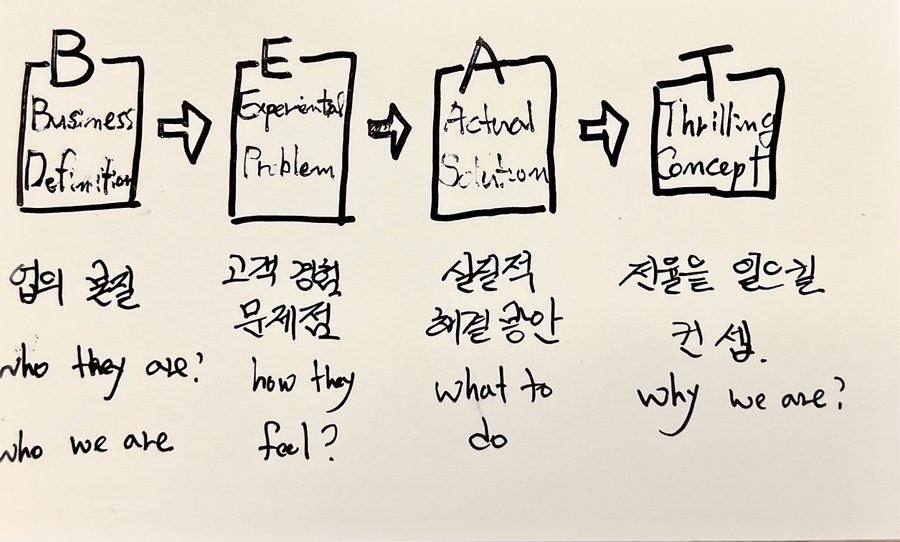 B
Business
Definition
업의 본질
who they are?
who we are
E
Experiential
Problem
고객 경험
문제점
how they
feel?
A
Actual
Solution
실질적
해결 방안
what to
do
T
Thrilling
Concept
전율을 일으킬
컨셉.
why we are?